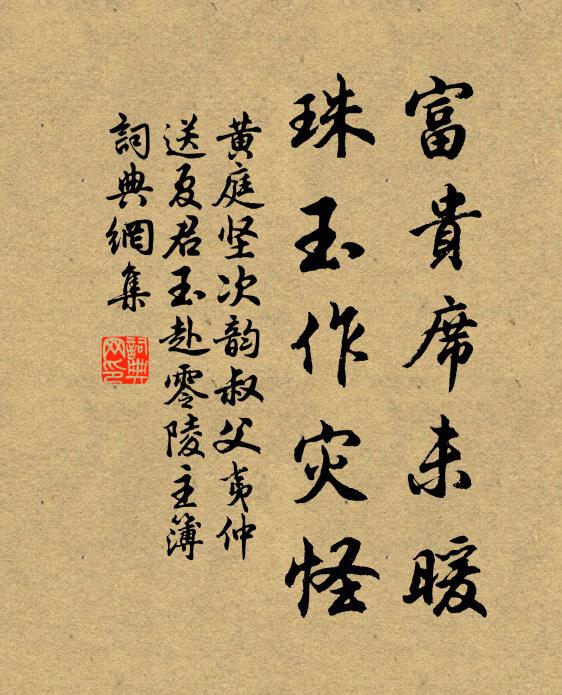 富貴席未暖
珠玉作灾怪
黄庭坚次韵叔父夷仲
送夏君玉赴零陵主簿
詞典網集
詞典网印